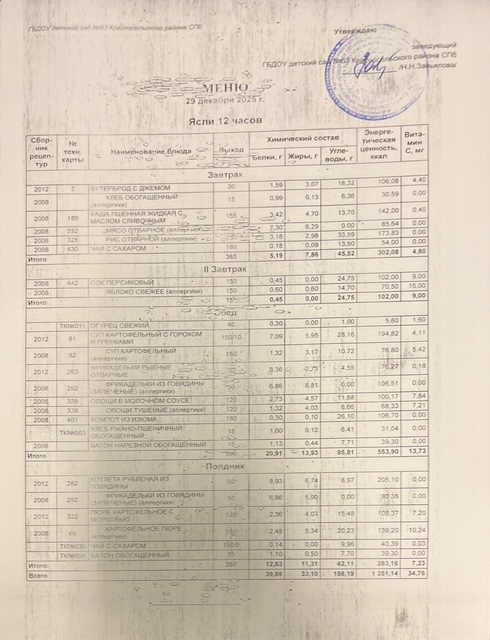 ГБДОУ детский сад №53 Красносельского района СПб
Утверждаю
заведующий
ГБДОУ детский сад №53 Красносельского района СПб
/Н.Н.Завьялова/
МЕНЮ
29 декабря 2025 г.
Ясли 12 часов
Сбор-ник рецеп-тур № техн. карты Наименование блюда Выход Химический состав Белки, г Жиры, г Угле-воды, г Энерге-тическая ценность, ккал Вита-мин С, мг
Завтрак
2012 2 БУТЕРБРОД С ДЖЕМОМ 30 1,59 3,07 18,32 106,08 4,40
2008 ХЛЕБ ОБОГАЩЕННЫЙ (аллергики) 15 0,99 0,13 6,36 30,59 0,00
2008 189 КАША ПШЕННАЯ ЖИДКАЯ С МАСЛОМ СЛИВОЧНЫМ 155 3,42 4,70 13,70 142,00 0,40
2008 252 МЯСО ОТВАРНОЕ (аллергики) 2,30 6,29 0,00 85,64 0,00
2008 325 РИС ОТВАРНОЙ (аллергики) 3,18 2,98 33,59 173,83 0,00
2008 430 ЧАЙ С САХАРОМ 180 0,18 0,09 13,50 54,00 0,00
Итого 365 5,19 7,86 45,52 302,08 4,80
II Завтрак
2008 442 СОК ПЕРСИКОВЫЙ 150 0,45 0,00 24,75 102,00 9,00
2008 ЯБЛОКО СВЕЖЕЕ (аллергики) 150 0,60 0,60 14,70 70,50 15,00
Итого 150 0,45 0,00 24,75 102,00 9,00
Обед
ТК№011 ОГУРЕЦ СВЕЖИЙ 40 0,30 0,00 1,00 5,60 1,60
2012 81 СУП КАРТОФЕЛЬНЫЙ С ГОРОХОМ И ГРЕНКАМИ 150/10 7,09 5,95 28,16 194,82 4,11
2008 92 СУП КАРТОФЕЛЬНЫЙ (аллергики) 150 1,32 3,17 10,72 76,80 5,42
2012 263 ФРИКАДЕЛЬКИ РЫБНЫЕ ОТВАРНЫЕ 8,36 2,75 4,55 76,27 0,18
2008 292 ФРИКАДЕЛЬКИ ИЗ ГОВЯДИНЫ (ЗАПЕЧЕНЫЕ) (аллергики) 6,86 8,81 0,00 106,51 0,00
2008 338 ОВОЩИ В МОЛОЧНОМ СОУСЕ 120 2,73 4,57 11,88 100,17 7,84
2008 336 ОВОЩИ ТУШЕНЫЕ (аллергики) 120 1,32 4,03 6,66 68,33 7,21
2008 401 КОМПОТ ИЗ ИЗЮМА 180 0,30 0,10 26,10 106,70 0,00
ТК№003 ХЛЕБ РЖАНО-ПШЕНИЧНЫЙ ОБОГАЩЕННЫЙ 15 1,00 0,12 6,41 31,04 0,00
2008 БАТОН НАРЕЗНОЙ ОБОГАЩЁННЫЙ 15 1,13 0,44 7,71 39,30 0,00
Итого 20,91 13,93 85,81 553,90 13,73
Полдник
2012 282 КОТЛЕТА РУБЛЕНАЯ ИЗ ГОВЯДИНЫ 60 8,93 6,74 8,97 205,10 0,00
2008 292 ФРИКАДЕЛЬКИ ИЗ ГОВЯДИНЫ (ЗАПЕЧЕНЫЕ) (аллергики) 6,86 5,90 0,00 80,35 0,00
2012 322 ПЮРЕ КАРТОФЕЛЬНОЕ С МОРКОВЬЮ 2,36 4,07 15,48 108,37 7,20
2008 КАРТОФЕЛЬНОЕ ПЮРЕ (аллергики) 2,48 5,34 20,23 139,20 10,24
ТК№030 ЧАЙ С САХАРОМ 0,14 0,00 9,96 40,39 0,03
ТК№004 БАТОН ОБОГАЩЕННЫЙ 15 1,10 0,50 7,70 39,30 0,00
Итого 360 12,53 11,31 42,11 393,16 7,23
Всего 39,08 33,10 198,19 1 351,14 34,76